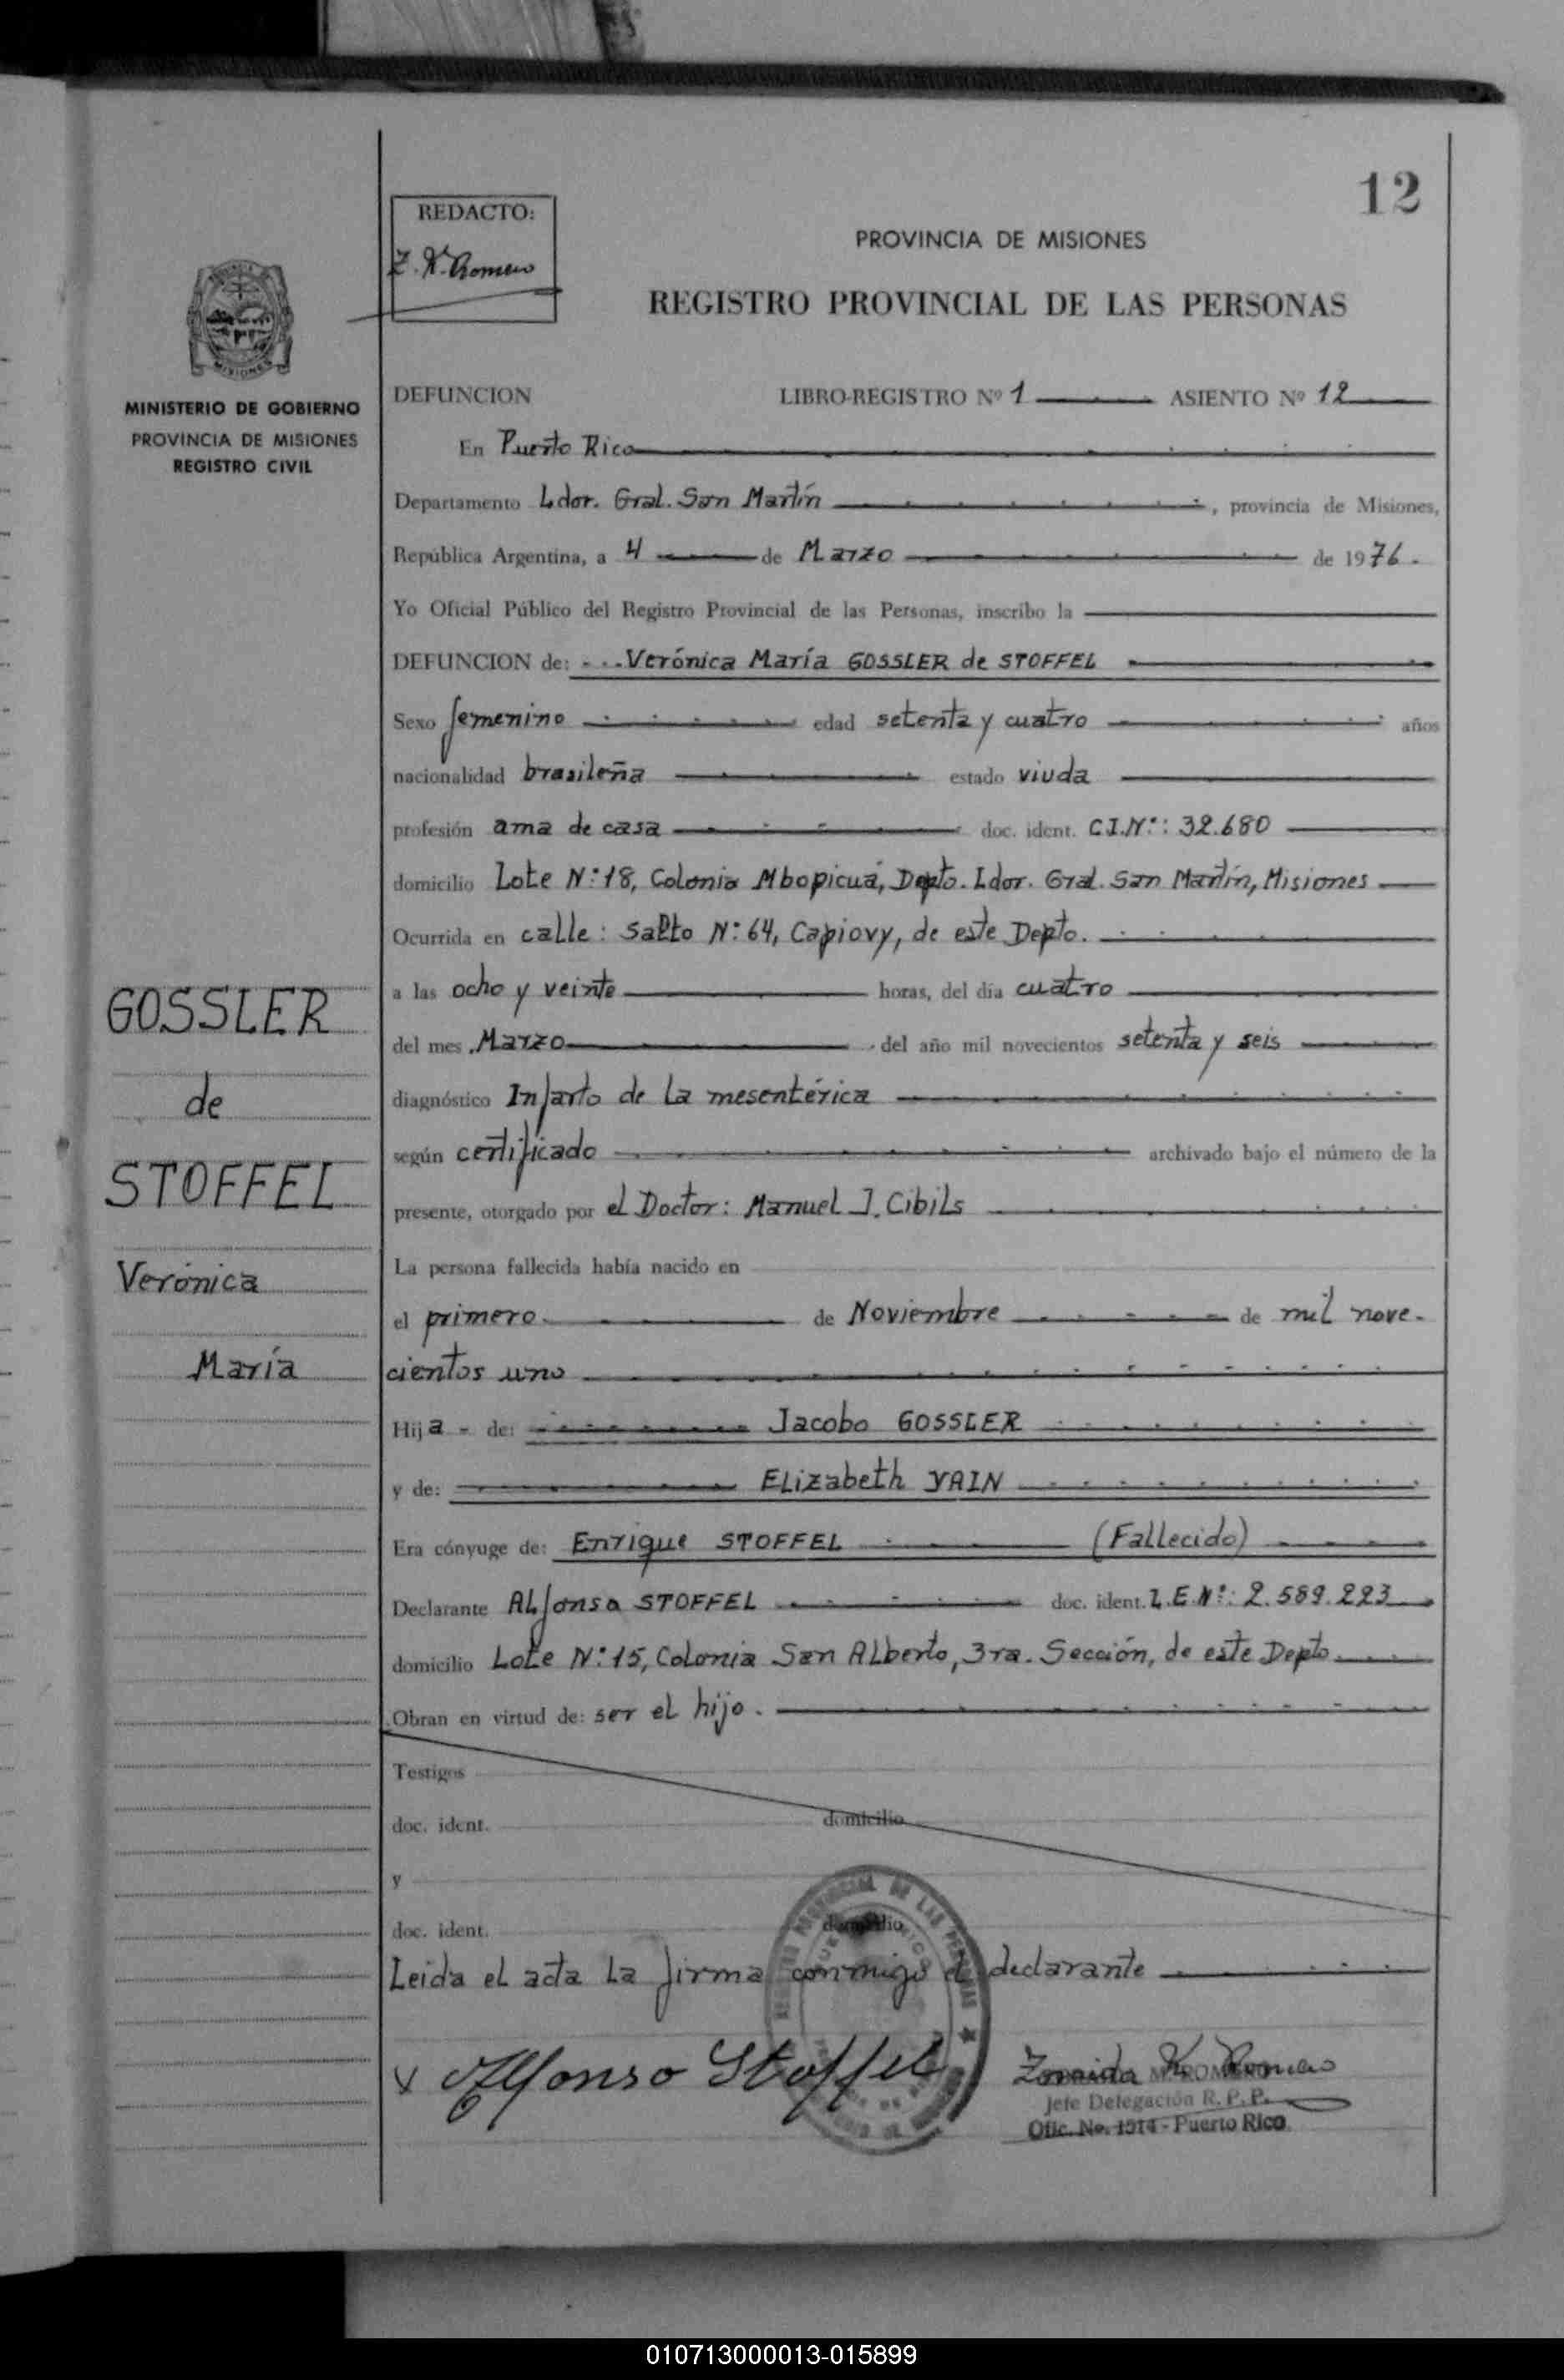 12
REDACTO:
PROVINCIA DE MISIONES
REGISTRO PROVINCIAL DE LAS PERSONAS
MINISTERIO DE GOBIERNO
PROVINCIA DE MISIONES
REGISTRO CIVIL
DEFUNCION LIBRO-REGISTRO Nº 1 ASIENTO Nº 12
En Puerto Rico
Departamento Ldor. Gral. San Martín, provincia de Misiones,
República Argentina, a 4 de Marzo de 1976.
Yo Oficial Público del Registro Provincial de las Personas, inscribo la
DEFUNCION de: Verónica María GOSSLER de STOFFEL
Sexo femenino edad setenta y cuatro años
nacionalidad brasileña estado viuda
profesión ama de casa doc. ident. C.I.Nº: 32.680
domicilio Lote Nº 18, Colonia Mbopicuá, Depto. Ldor. Gral. San Martín, Misiones
Ocurrida en calle: Salto Nº 64, Capiovy, de este Depto.
a las ocho y veinte horas, del día cuatro
del mes Marzo del año mil novecientos setenta y seis
diagnóstico Infarto de la mesentérica
según certificado archivado bajo el número de la
presente, otorgado por el Doctor: Manuel J. Cibils
La persona fallecida había nacido en
el primero de Noviembre de mil nove-
cientos uno
Hija de: Jacobo GOSSLER
y de: Elizabeth YAIN
Era cónyuge de: Enrique STOFFEL (Fallecido)
Declarante Alfonso STOFFEL doc. ident. L.E.Nº: 2.589.223
domicilio Lote Nº 15, Colonia San Alberto, 3ra. Sección, de este Depto.
Obran en virtud de: ser el hijo.
Testigos
doc. ident. domicilio
y
doc. ident. domicilio
Leída el acta la firma conmigo el declarante
GOSSLER
de
STOFFEL
Verónica
María
Alfonso Stoffel
Jefe Delegación R. P. P.
Ofic. No. 1314 - Puerto Rico
010713000013-015899